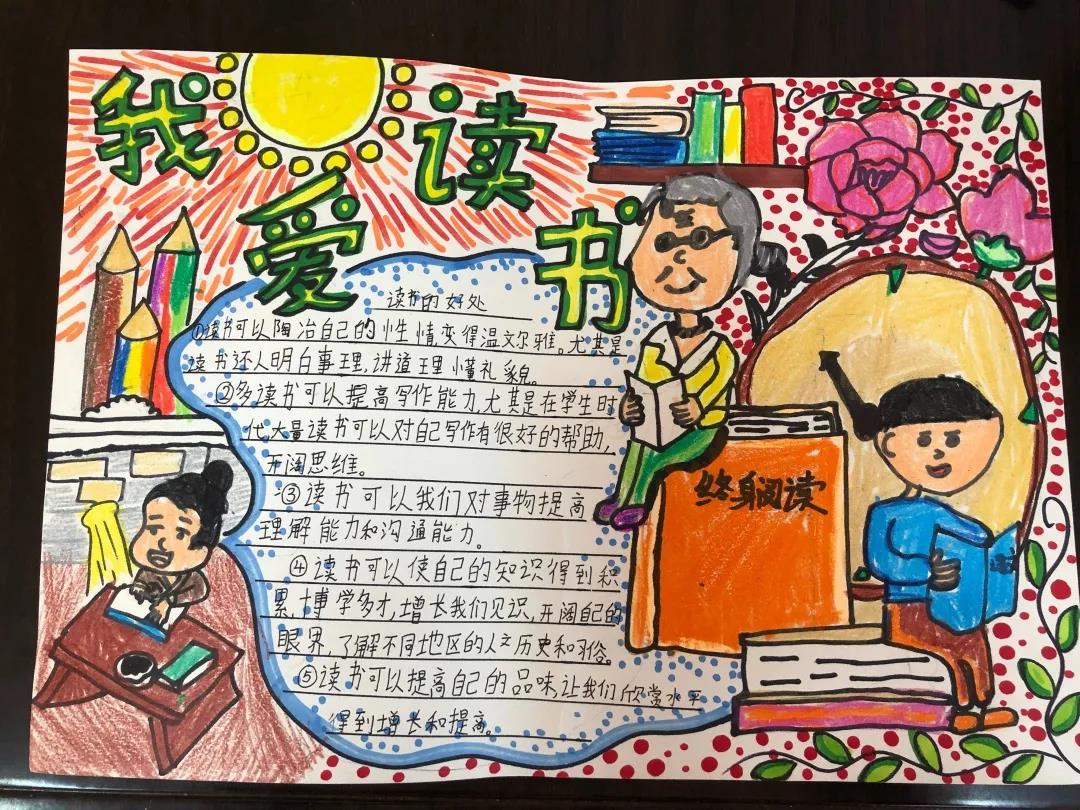 我爱读书
读书的好处
①读书可以陶冶自己的性情变得温文尔雅。尤其是
读书还人明白事理,讲道理懂礼貌。
②多读书可以提高写作能力,尤其是在学生时
代,大量读书可以对自己写作有很好的帮助,
开阔思维。
③读书可以我们对事物提高
理解能力和沟通能力。
④读书可以使自己的知识得到积
累,博学多才,增长我们见识,开阔自己的
眼界,了解不同地区的人文历史和习俗。
⑤读书可以提高自己的品味,让我们欣赏水平
得到增长和提高。
终身阅读